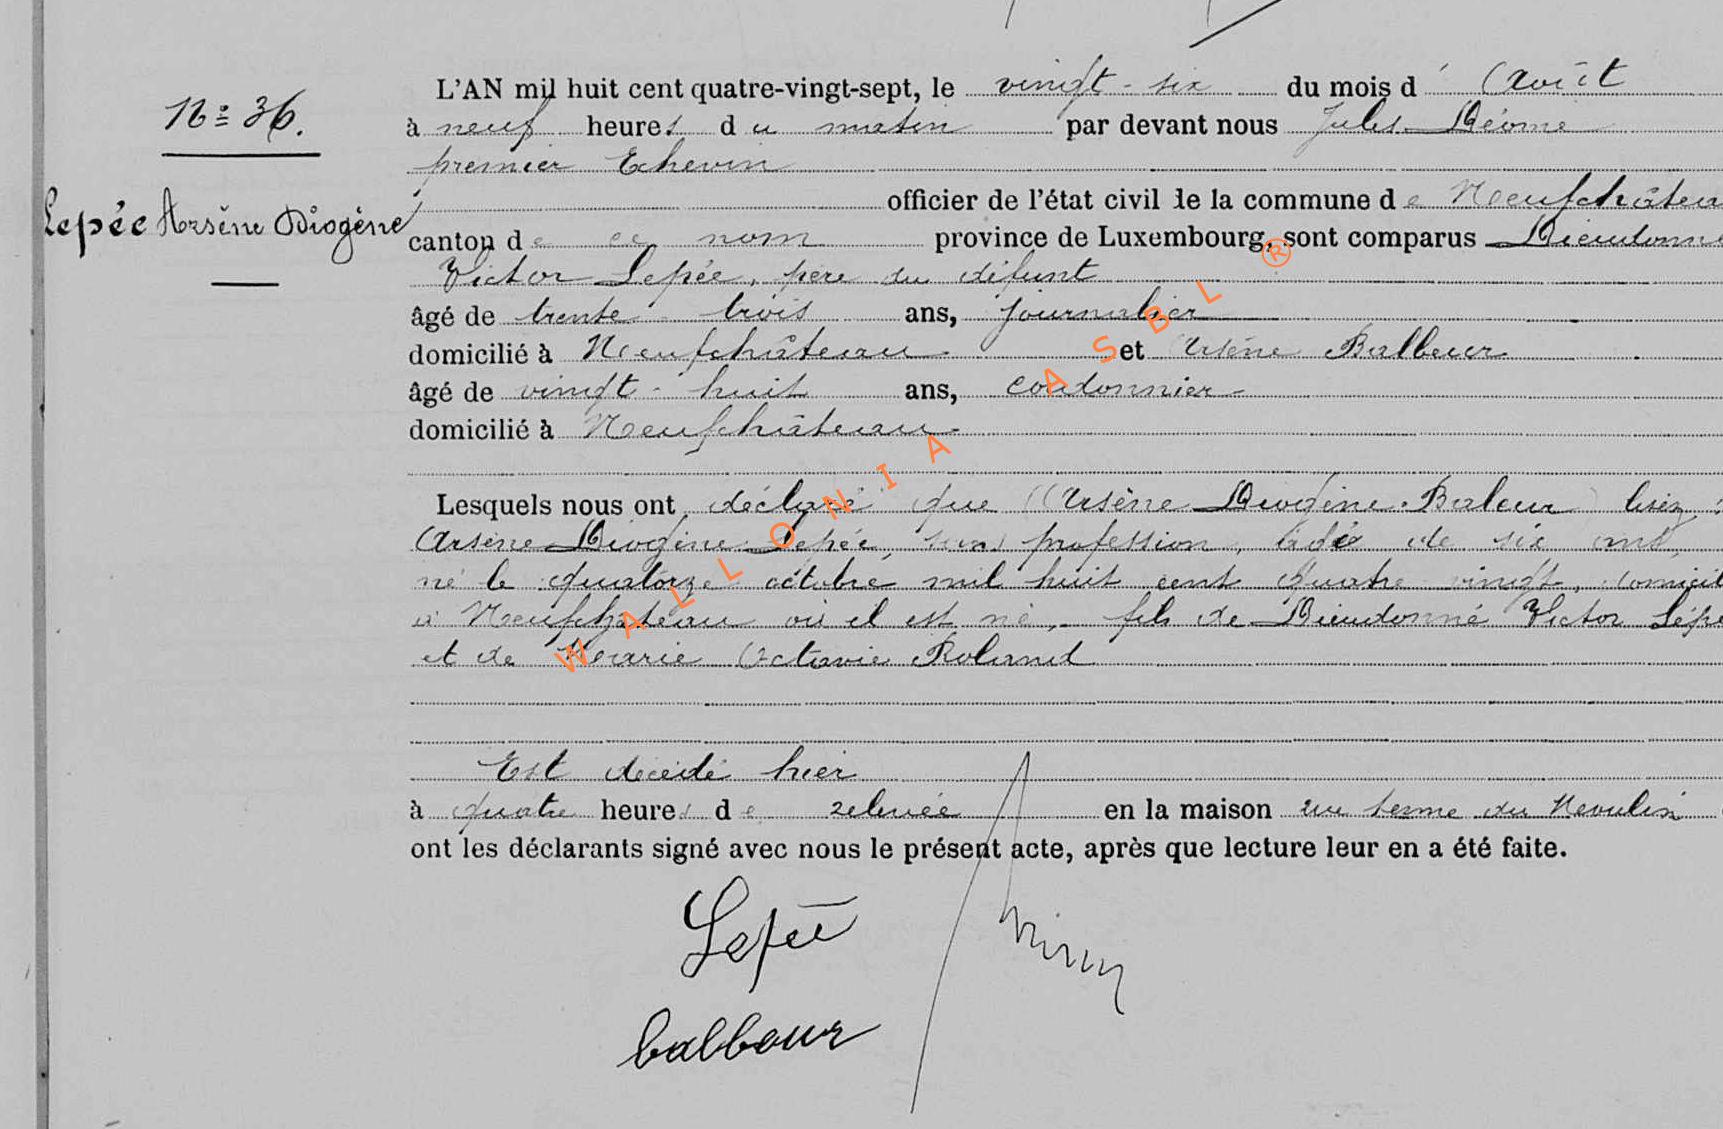 N° 36.
Lepée Arsène Diogène
L'AN mil huit cent quatre-vingt-sept, le vingt-six du mois d' Août
à neuf heures du matin par devant nous Jules Déome
premier Echevin
officier de l'état civil de la commune de Neufchâteau
canton de ce nom province de Luxembourg, sont comparus Dieudonné
Victor Lepée, père du défunt
âgé de trente-trois ans, journalier
domicilié à Neufchâteau et Arsène Balbeur
âgé de vingt-huit ans, cordonnier
domicilié à Neufchâteau
Lesquels nous ont déclaré que (Arsène Diogène Baleur) lisez :
Arsène Diogène Lepée, sans profession, âgé de six ans,
né le quatorze octobre mil huit cent quatre vingt, domicil
à Neufchâteau où il est né, fils de Dieudonné Victor Lepé
et de Marie Octavie Roland
Est décédé hier
à quatre heures de relevée en la maison du Moulin
ont les déclarants signé avec nous le présent acte, après que lecture leur en a été faite.
Lepée
balbeur
WALLONIA ASBL ®